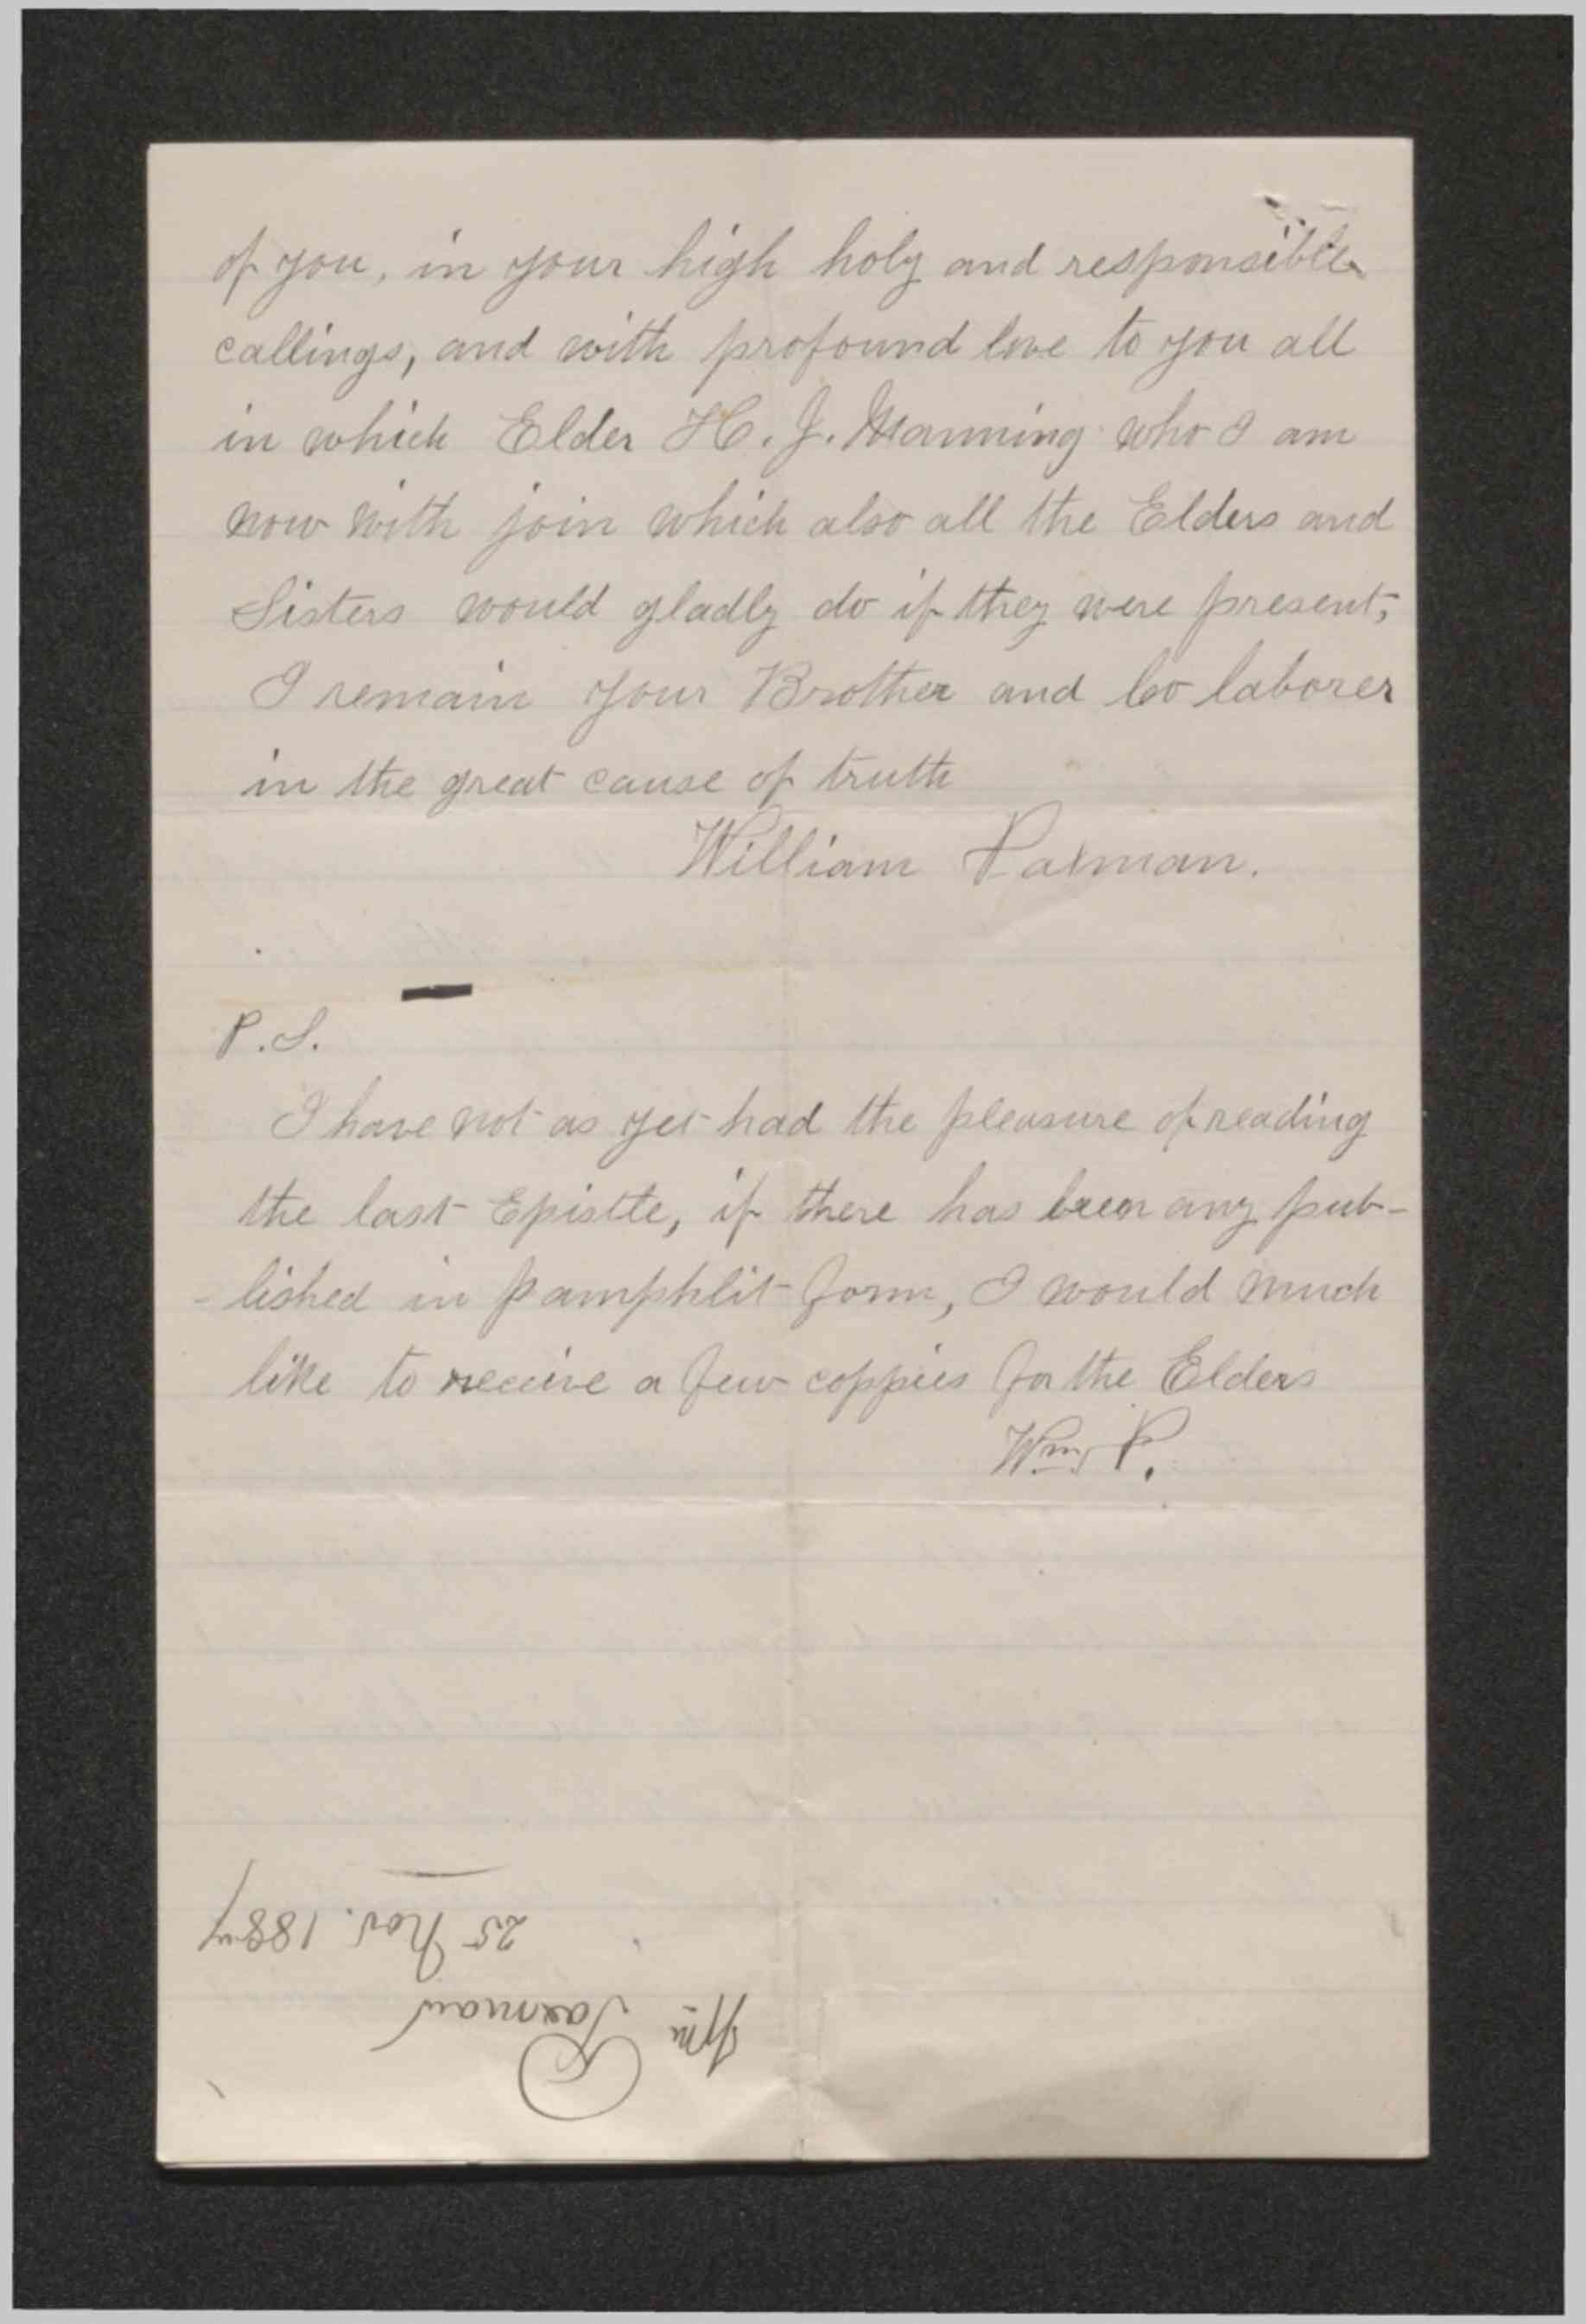 of you, in your high holy and responsible
callings, and with profound love to you all
in which Elder H. J. Manning who I am
now with join which also all the Elders and
Sisters would gladly do if they were present,
I remain your Brother and Co laborer
in the great cause of truth
William Paxman.
P.S.
I have not as yet had the pleasure of reading
the last Epistle, if there has been any pub-
-lished in pamphlit form, I would much
like to receive a few coppies for the Elders
Wm. P.
Wm Paxman
25 Nov. 1887